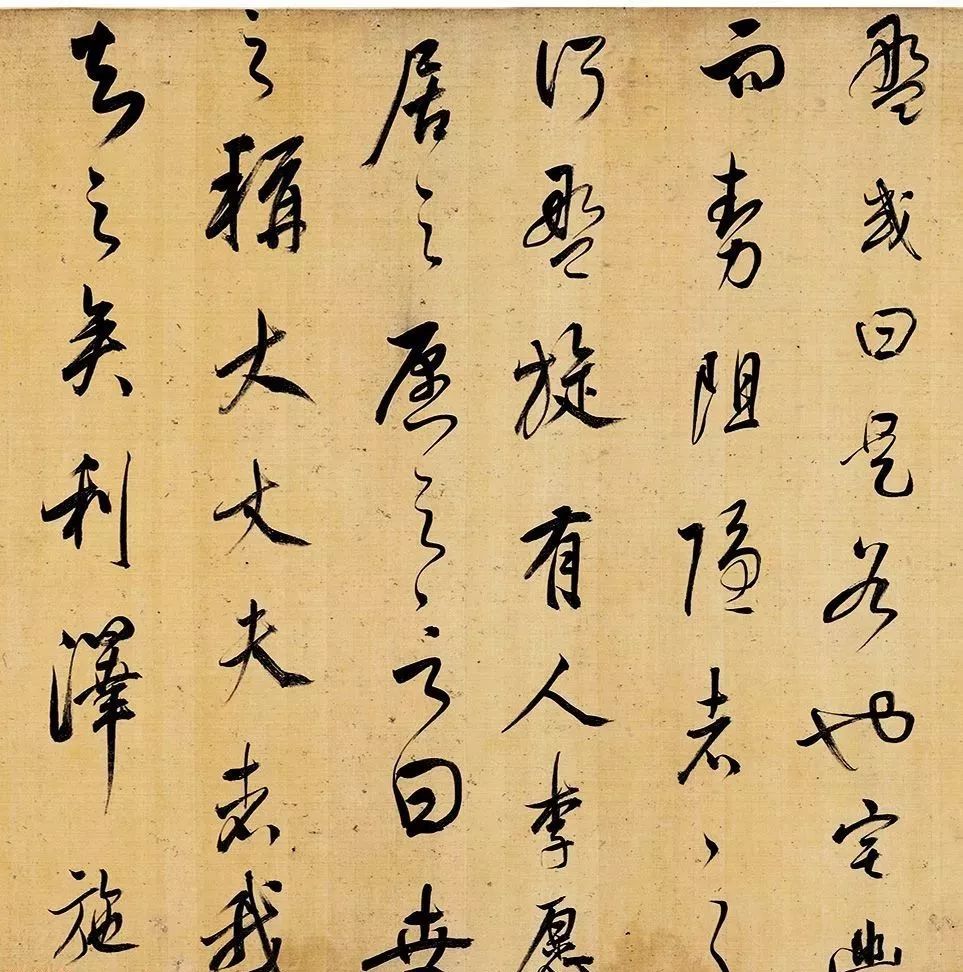 盤或曰是谷也宅幽
而勢阻隱者之
所盤旋有人李愿
居之愿之言曰世
之稱大丈夫者我
知之矣利澤施